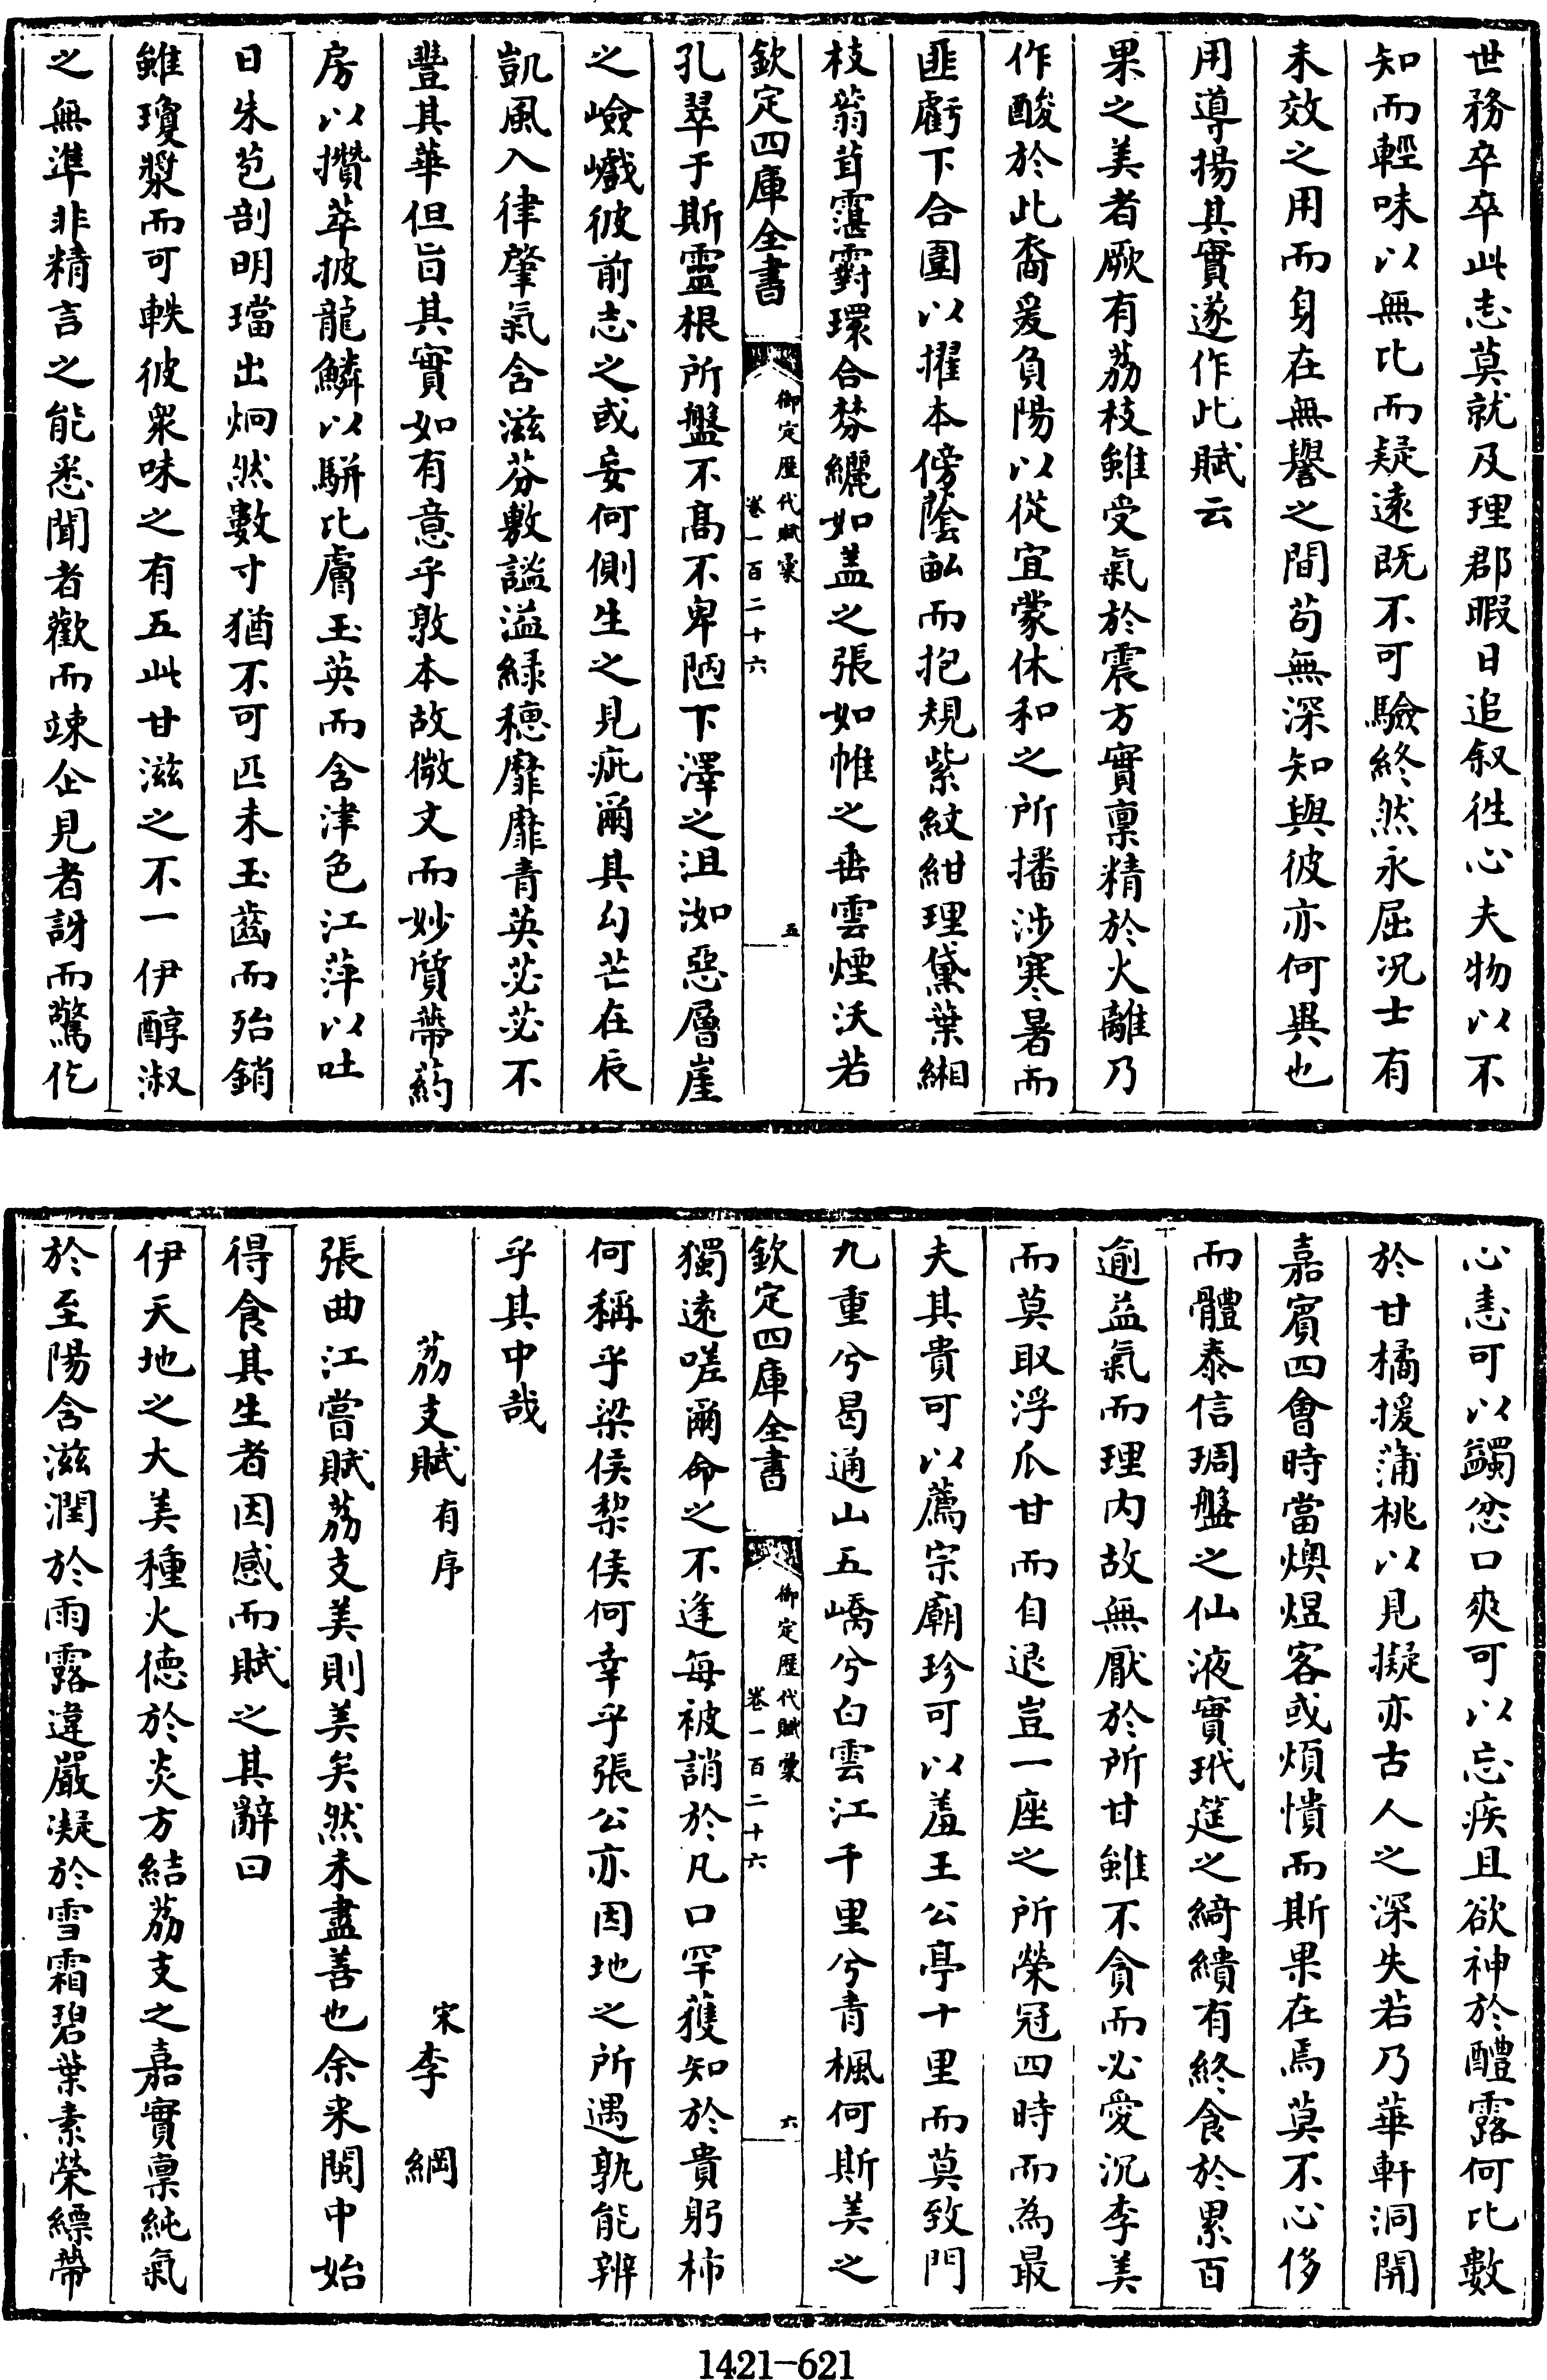 世務卒卒此志莫就及理郡暇日追叙徃心夫物以不
知而輕味以無比而疑遠既不可驗終然永屈况士有
未效之用而身在無譽之間苟無深知與彼亦何異也
用導揚其實遂作此賦云
果之美者厥有荔枝雖受氣於震方實稟精於火離乃
作酸於此裔爰負陽以從宜蒙休和之所播渉寒暑而
匪虧下合圍以擢本傍蔭畝而抱規紫紋紺理黛葉緗
枝蓊茸霮䨴環合棼纚如盖之張如帷之垂雲煙沃若
欽定四庫全書
御定歴代賦彚
卷一百二十六
五
孔翠于斯靈根所盤不髙不卑陋下澤之沮洳惡層崖
之嶮巇彼前志之或妄何側生之見疵爾其勾芒在辰
凱風入律肇氣含滋芬敷謐溢緑穗靡靡青英苾苾不
豐其華但旨其實如有意乎敦本故微文而妙質蔕葯
房以攢萃披龍鱗以駢比膚玉英而含津色江萍以吐
日朱苞剖明璫出炯然數寸猶不可匹未玉齒而殆銷
雖瓊漿而可軼彼衆味之有五此甘滋之不一伊醇淑
之無準非精言之能悉聞者歡而竦企見者訝而驚仡
心恚可以蠲忿口爽可以忘疾且欲神於醴露何比數
於甘橘援蒲桃以見擬亦古人之深失若乃華軒洞開
嘉賓四會時當燠煜客或煩憒而斯果在焉莫不心侈
而體泰信琱盤之仙液實玳筵之綺繢有終食於累百
逾益氣而理内故無厭於所甘雖不貪而必愛沉李美
而莫取浮瓜甘而自退豈一座之所榮冠四時而為最
夫其貴可以薦宗廟珍可以羞王公亭十里而莫致門
九重兮曷通山五嶠兮白雲江千里兮青楓何斯美之
欽定四庫全書
御定歴代賦彚
卷一百二十六
六
獨遠嗟爾命之不逢每被誚於凡口罕獲知於貴躬柿
何稱乎梁侯棃何幸乎張公亦因地之所遇孰能辨
乎其中哉
荔支賦有序
宋李綱
張曲江嘗賦荔支美則美矣然未盡善也余来閩中始
得食其生者因感而賦之其辭曰
伊天地之大美種火德於炎方結荔支之嘉實稟純氣
於至陽含滋潤於雨露違嚴凝於雪霜碧葉素榮縹蔕
1421-621